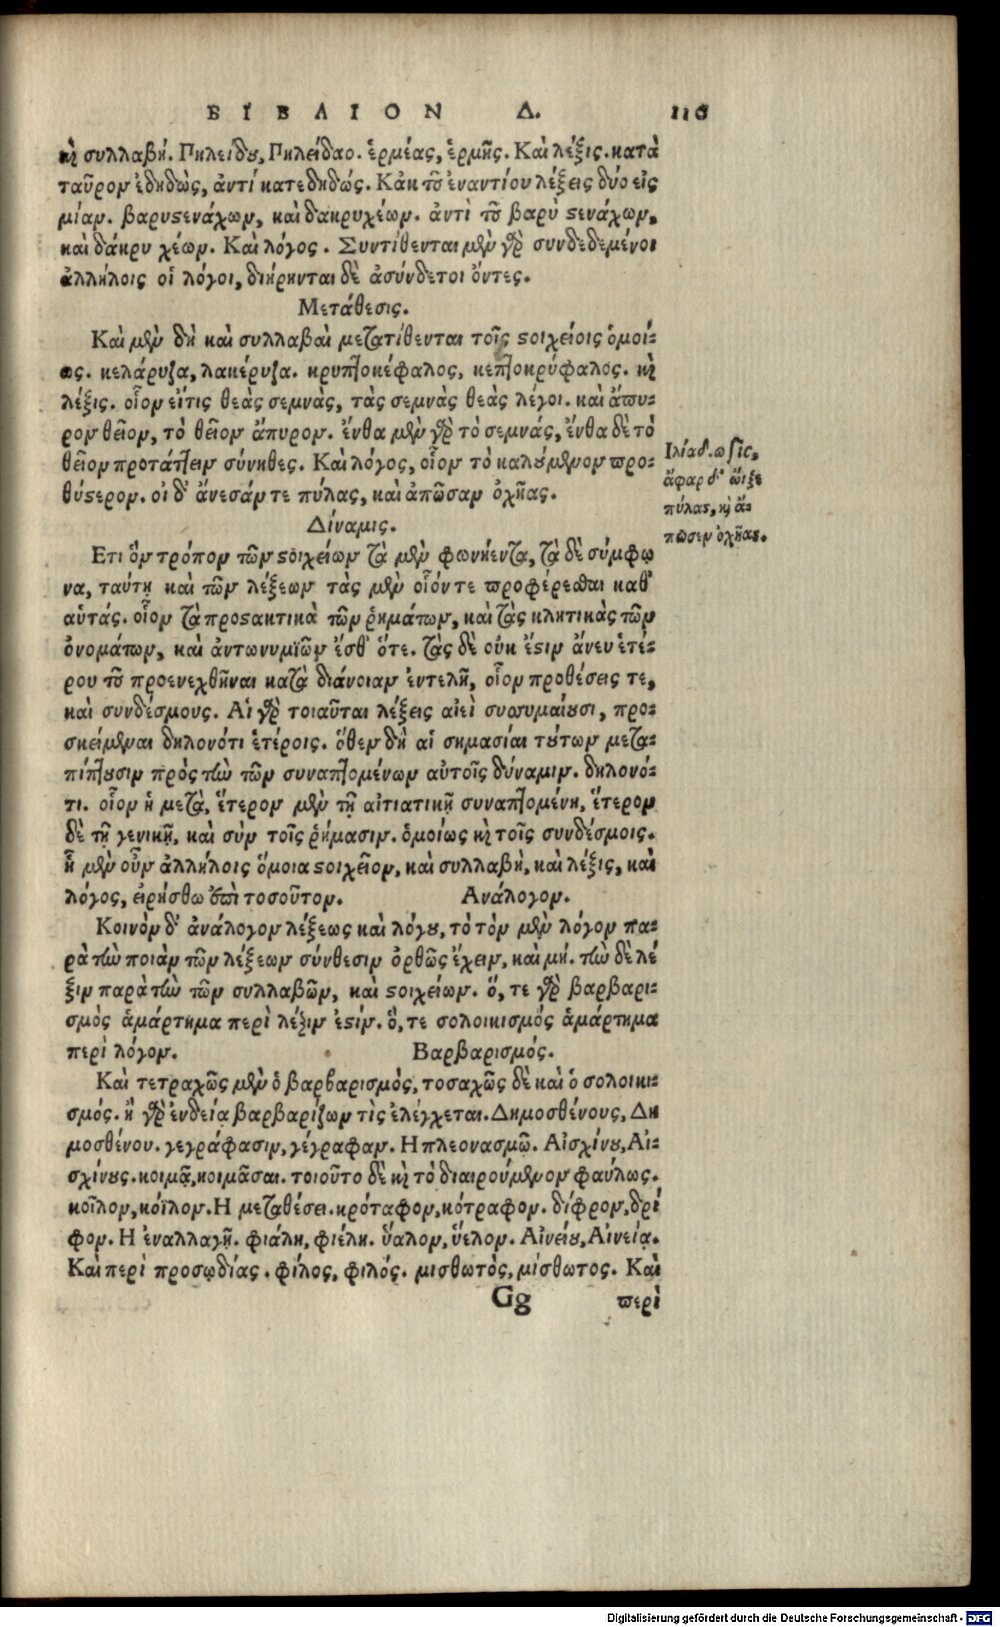 ΒΙΒΛΙΟΝ Δ. 116
καὶ συλλαβή. Πηλείδου, Πηλείδαο. ἑρμέας, ἑρμῆς. Καὶ λέξις. κατὰ
ταῦρον ἐδηδὼς, ἀντί κατεδηδώς. Κἀκ τοῦ ἐναντίου λέξεις δύο εἰς
μίαν. βαρυστενάχων, καὶ δακρυχέων. ἀντὶ τοῦ βαρὺ στενάχων,
καὶ δάκρυ χέων. Καὶ λόγος. Συντίθενται μὲν γὰρ συνδεδεμένοι
ἀλλήλοις οἱ λόγοι, διήρηνται δὲ ἀσύνδετοι ὄντες.
Μετάθεσις.
Καὶ μὲν δὴ καὶ συλλαβαὶ μετατίθενται τοῖς στοιχείοις ὁμοί-
ως. κελάρυζα, λακέρυζα. κρυπτοκέφαλος, κεπτοκρύφαλος. καὶ
λέξις. οἷον εἴτις θεὰς σεμνὰς, τὰς σεμνὰς θεὰς λέγοι. καὶ ἄπυ-
ρον θεῖον, τὸ θεῖον ἄπυρον. ἔνθα μὲν γὰρ τὸ σεμνάς, ἔνθα δὲ τὸ
θεῖον προτάττειν σύνηθες. Καὶ λόγος, οἷον τὸ καλούμενον προ-
θύστερον. οἱ δ' ἄνεσάν τε πύλας, καὶ ἀπῶσαν ὀχῆας.
Ἰλίαδ. ω
ἄφαρ δ' ὤιξε
πύλας, καὶ ἄ-
πωσεν ὀχῆας.
Δίναμις.
Ετι ὃν τρόπον τῶν στοιχείων τὰ μὲν φωνήεντα, τὰ δὲ σύμφω
να, ταύτῃ καὶ τῶν λέξεων τὰς μὲν οἷόν τε προφέρεσθαι καθ'
αὑτάς. οἷον τὰ προστακτικὰ τῶν ῥημάτων, καὶ τὰς κλητικὰς τῶν
ὀνομάτων, καὶ ἀντωνυμιῶν ἔσθ' ὅτε. τὰς δὲ οὐκ ἔστιν ἄνευ ἑτέ-
ρου τοῦ προενεχθῆναι κατὰ διάνοιαν ἐντελῆ, οἷον προθέσεις τε,
καὶ συνδέσμους. Αἱ γὰρ τοιαῦται λέξεις αἰεὶ συσσημαίουσι, προσ-
κείμεναι δηλονότι ἑτέροις. ὅθεν δὴ αἱ σημασίαι τούτων μετα-
πίπτουσιν πρὸς τὴν τῶν συναπτομένων αὐτοῖς δύναμιν. δηλονό-
τι. οἷον ἡ μετὰ, ἕτερον μὲν τῇ αἰτιατικῇ συναπτομένη, ἕτερον
δὲ τῇ γενικῇ, καὶ σὺν τοῖς ῥήμασιν. ὁμοίως καὶ τοῖς συνδέσμοις.
ᾗ μὲν οὖν ἀλλήλοις ὅμοια στοιχεῖον, καὶ συλλαβὴ, καὶ λέξις, καὶ
λόγος, εἰρήσθω ἐπὶ τοσοῦτον. Ανάλογον.
Κοινὸν δ' ἀνάλογον λέξεως καὶ λόγου, τὸ τὸν μὲν λόγον πα-
ρὰ τὴν ποιὰν τῶν λέξεων σύνθεσιν ὀρθῶς ἔχειν, καὶ μή. τὴν δὲ λέ
ξιν παρὰ τὴν τῶν συλλαβῶν, καὶ στοιχείων. ὅ, τε γὰρ βαρβαρι-
σμὸς ἁμάρτημα περὶ λέξιν ἐστίν. ὅ, τε σολοικισμός ἁμάρτημα
περὶ λόγον. Βαρβαρισμός.
Καὶ τετραχῶς μὲν ὁ βαρβαρισμὸς, τοσαχῶς δὲ καὶ ὁ σολοικι-
σμός. ἢ γὰρ ἐνδείᾳ βαρβαρίζων τὶς ἐλέγχεται. Δημοσθένους, Δη
μοσθένου. γεγράφασιν, γέγραφαν. Η πλεονασμῷ. Αἰσχίνου, Αἰ-
σχίνους. κοιμᾷ, κοιμᾶσαι. τοιοῦτο δὲ καὶ τὸ διαιρούμενον φαύλως.
κοῖλον, κόϊλον. Η μεταθέσει. κρόταφον, κότραφον. δίφρον, δρί
φον. Η ἐναλλαγῇ. φιάλη, φιέλη. ὕαλον, ὕελον. Αἰνείου, Αἰνεία.
Καὶ περὶ προσῳδίας. φίλος, φιλός. μισθωτὸς, μίσθωτος. Καὶ
Gg περὶ
Digitalisierung gefördert durch die Deutsche Forschungsgemeinschaft - DFG